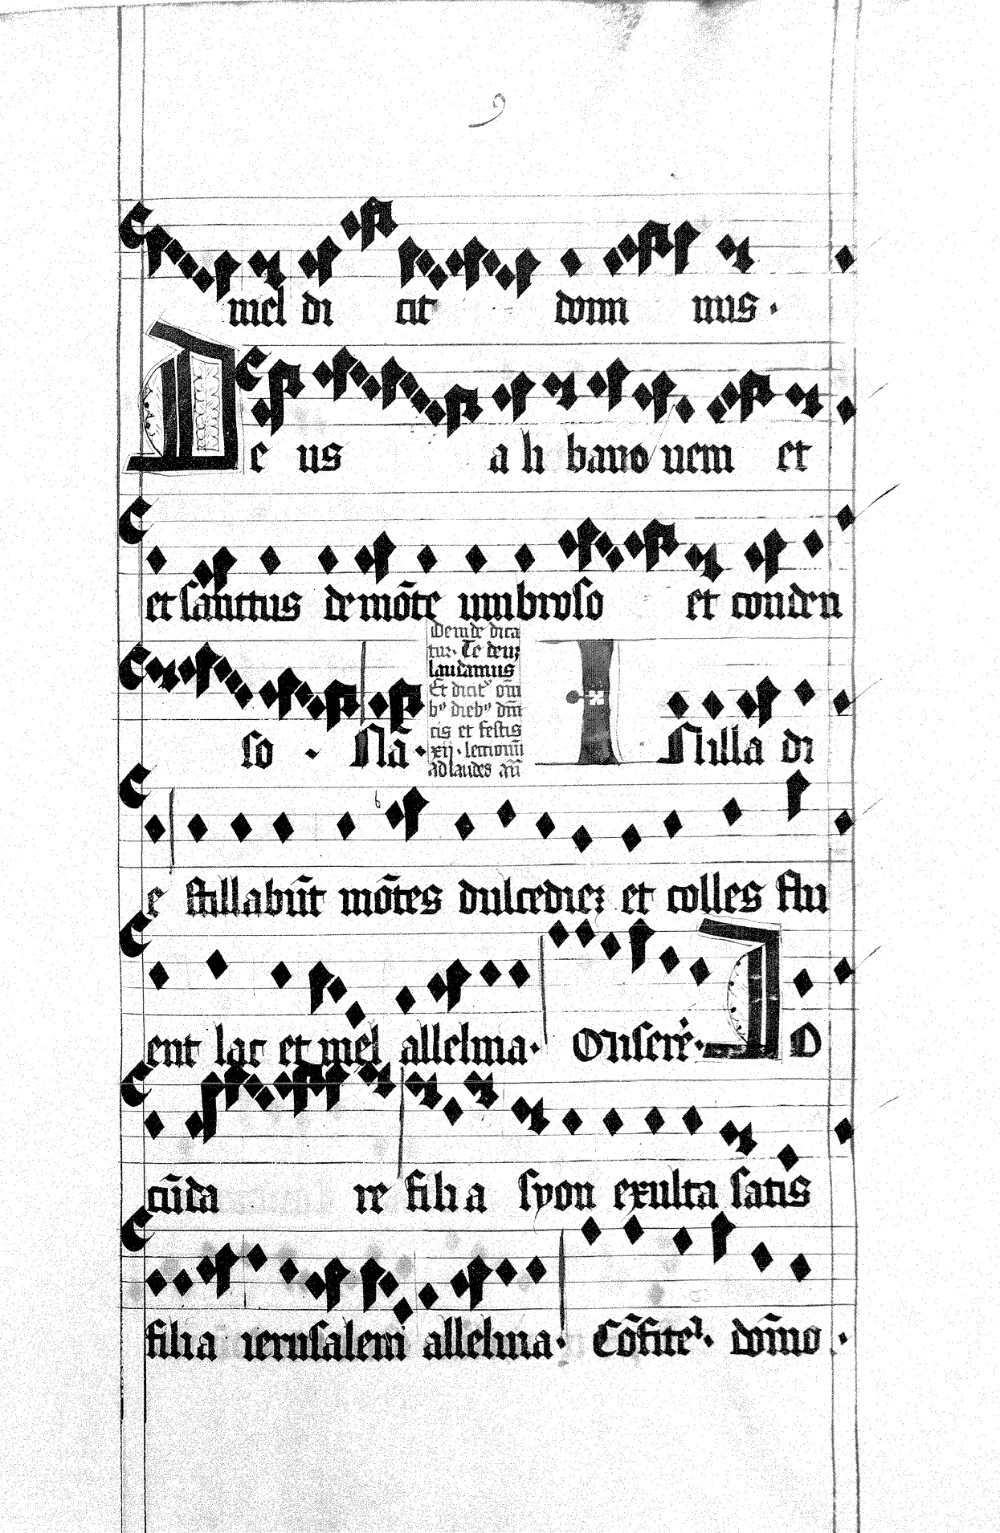 mel di cit domi nus ·
De us a li bano ueni et
et sanctus de mōte umbroso et conden
so · Na͞ ·
Deinde dica
tur · Te deuȝ
laudamus
Et dicit᷑ om̄
bꝰ diebꝰ dn̄i
cis et festis
xij · lectionū
ad laudes an̄
In illa di
e stillabūt mōtes dulcedineȝ et colles flu
ent lac et mel alleluia · Miserē · Io
cūda re filia syon exulta satis
filia ierusalem alleluia · Cōfite᷑ · dom̄o ·